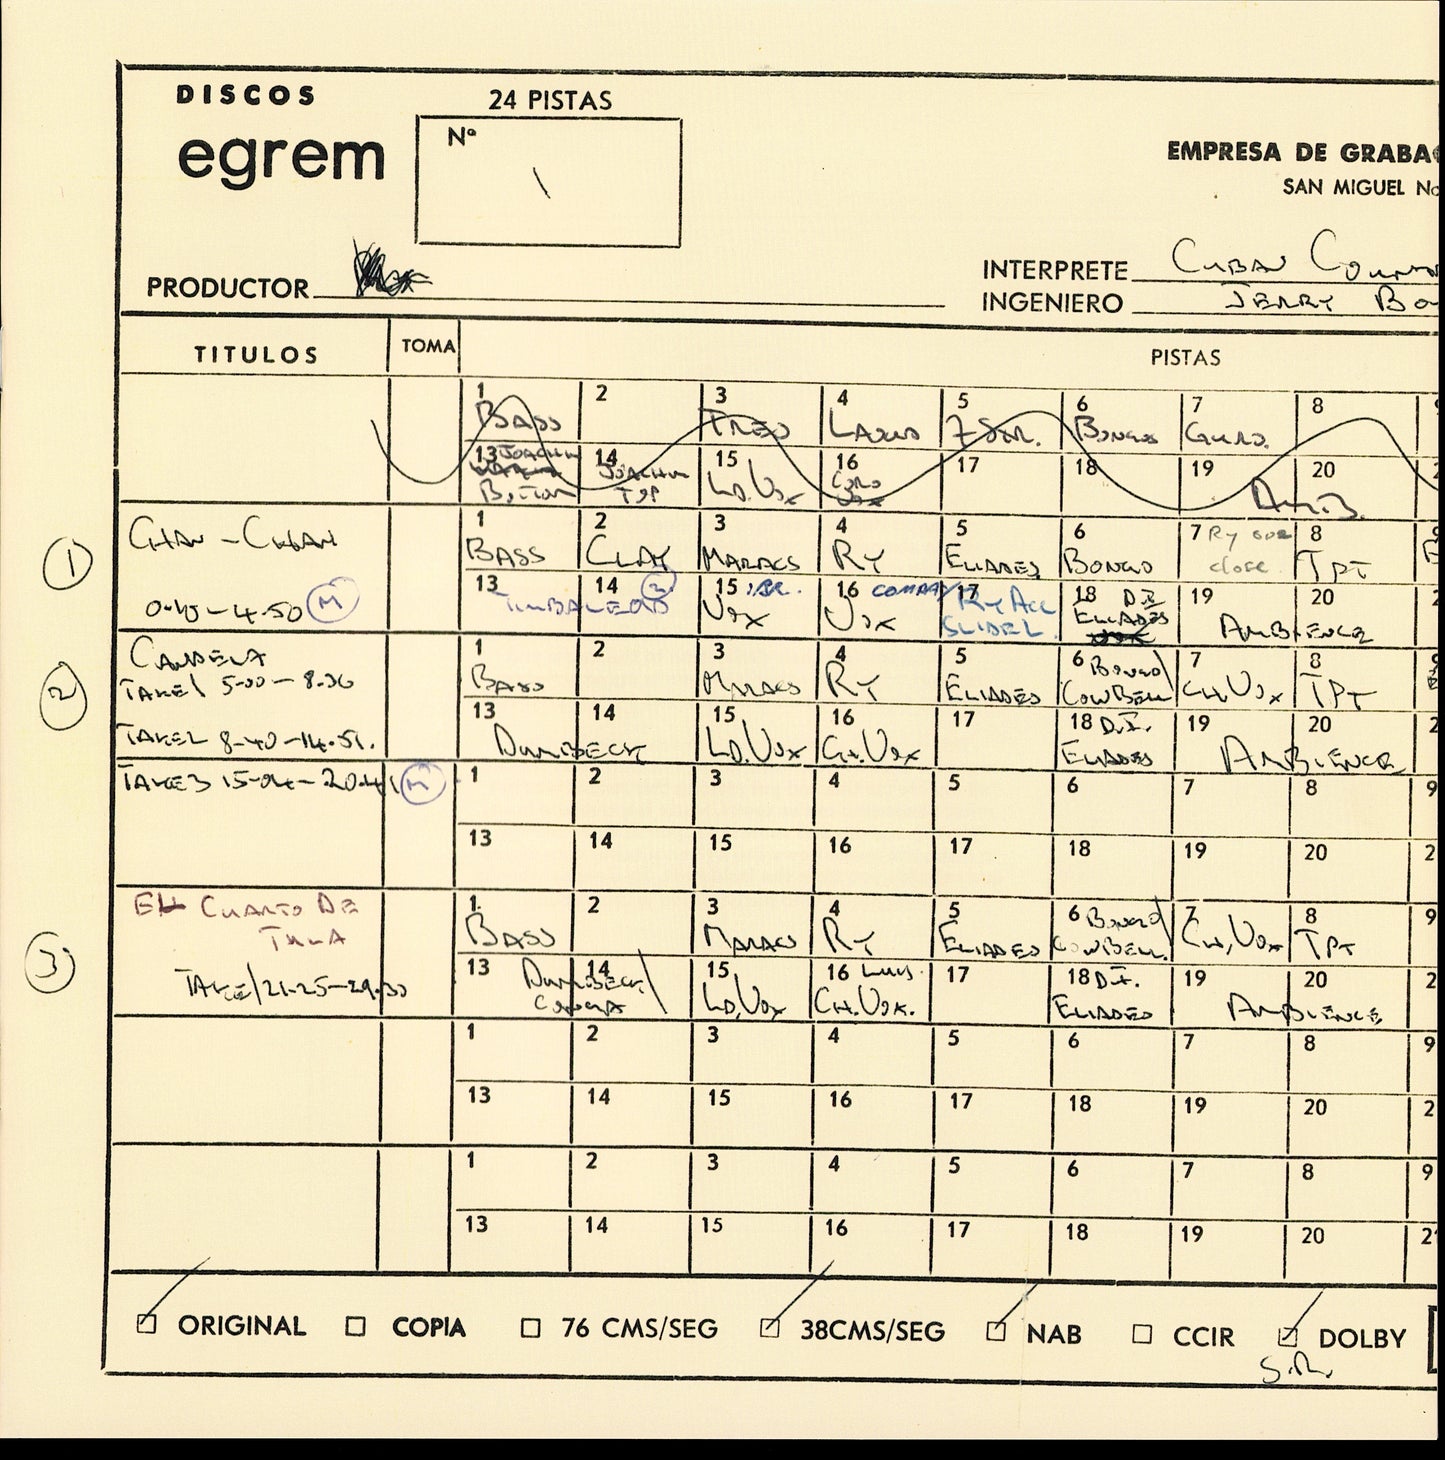 DISCOS
24 PISTAS
egrem
Nº
\
EMPRESA DE GRABA
SAN MIGUEL No
PRODUCTOR
INTERPRETE CUBAN COUNT
INGENIERO JERRY BO
TITULOS TOMA PISTAS
1 2 3 4 5 6 7 8
BASS TRES LAOUD 7 STR. BONGOS GUIRO.
13 JOACHIM 14 15 16 17 18 19 20
BOTTOM JOACHIM TOP LD.VOX CORO AMB.
1 CHAN-CHAN
1 2 3 4 5 6 7 Ry 8
BASS CLAY MARACS RY ELIADES BONGO close TPT
13 14 2 15 16 COMPAY 17 18 D.I. 19 20
0.40-4.50 M TIMBALE VOX VOX RY ACC SLIDE L. ELIADES AMBIENCE
2 CANDELA
1 2 3 4 5 6 BONGO\ 7 8
TAKE 1 5-00-8.36 BASS MARACS RY ELIADES COWBELL CH.VOX TPT
13 14 15 16 17 18 D.I. 19 20 2
TAKE 2 8-40-14.51. DUMBECK LD.VOX CH.VOX ELIADES AMBIENCE
TAKE 3 15-04-20.41 M
1 2 3 4 5 6 7 8 9
13 14 15 16 17 18 19 20 2
3 EL CUARTO DE TULA
1. 2 3 4 5 6 BONGO\ 7 8 9
BASS MARACS RY ELIADES COWBELL CH.VOX TPT
13 14 15 16 LUIS. 17 18 D.I. 19 20 2
TAKE 1 21-25-29.30 DUMBECK\ CONGA LD.VOX CH.VOX. ELIADES AMBIENCE
1 2 3 4 5 6 7 8 9
13 14 15 16 17 18 19 20 2
1 2 3 4 5 6 7 8 9
13 14 15 16 17 18 19 20 2
ORIGINAL COPIA 76 CMS/SEG 38CMS/SEG NAB CCIR DOLBY
S.R.